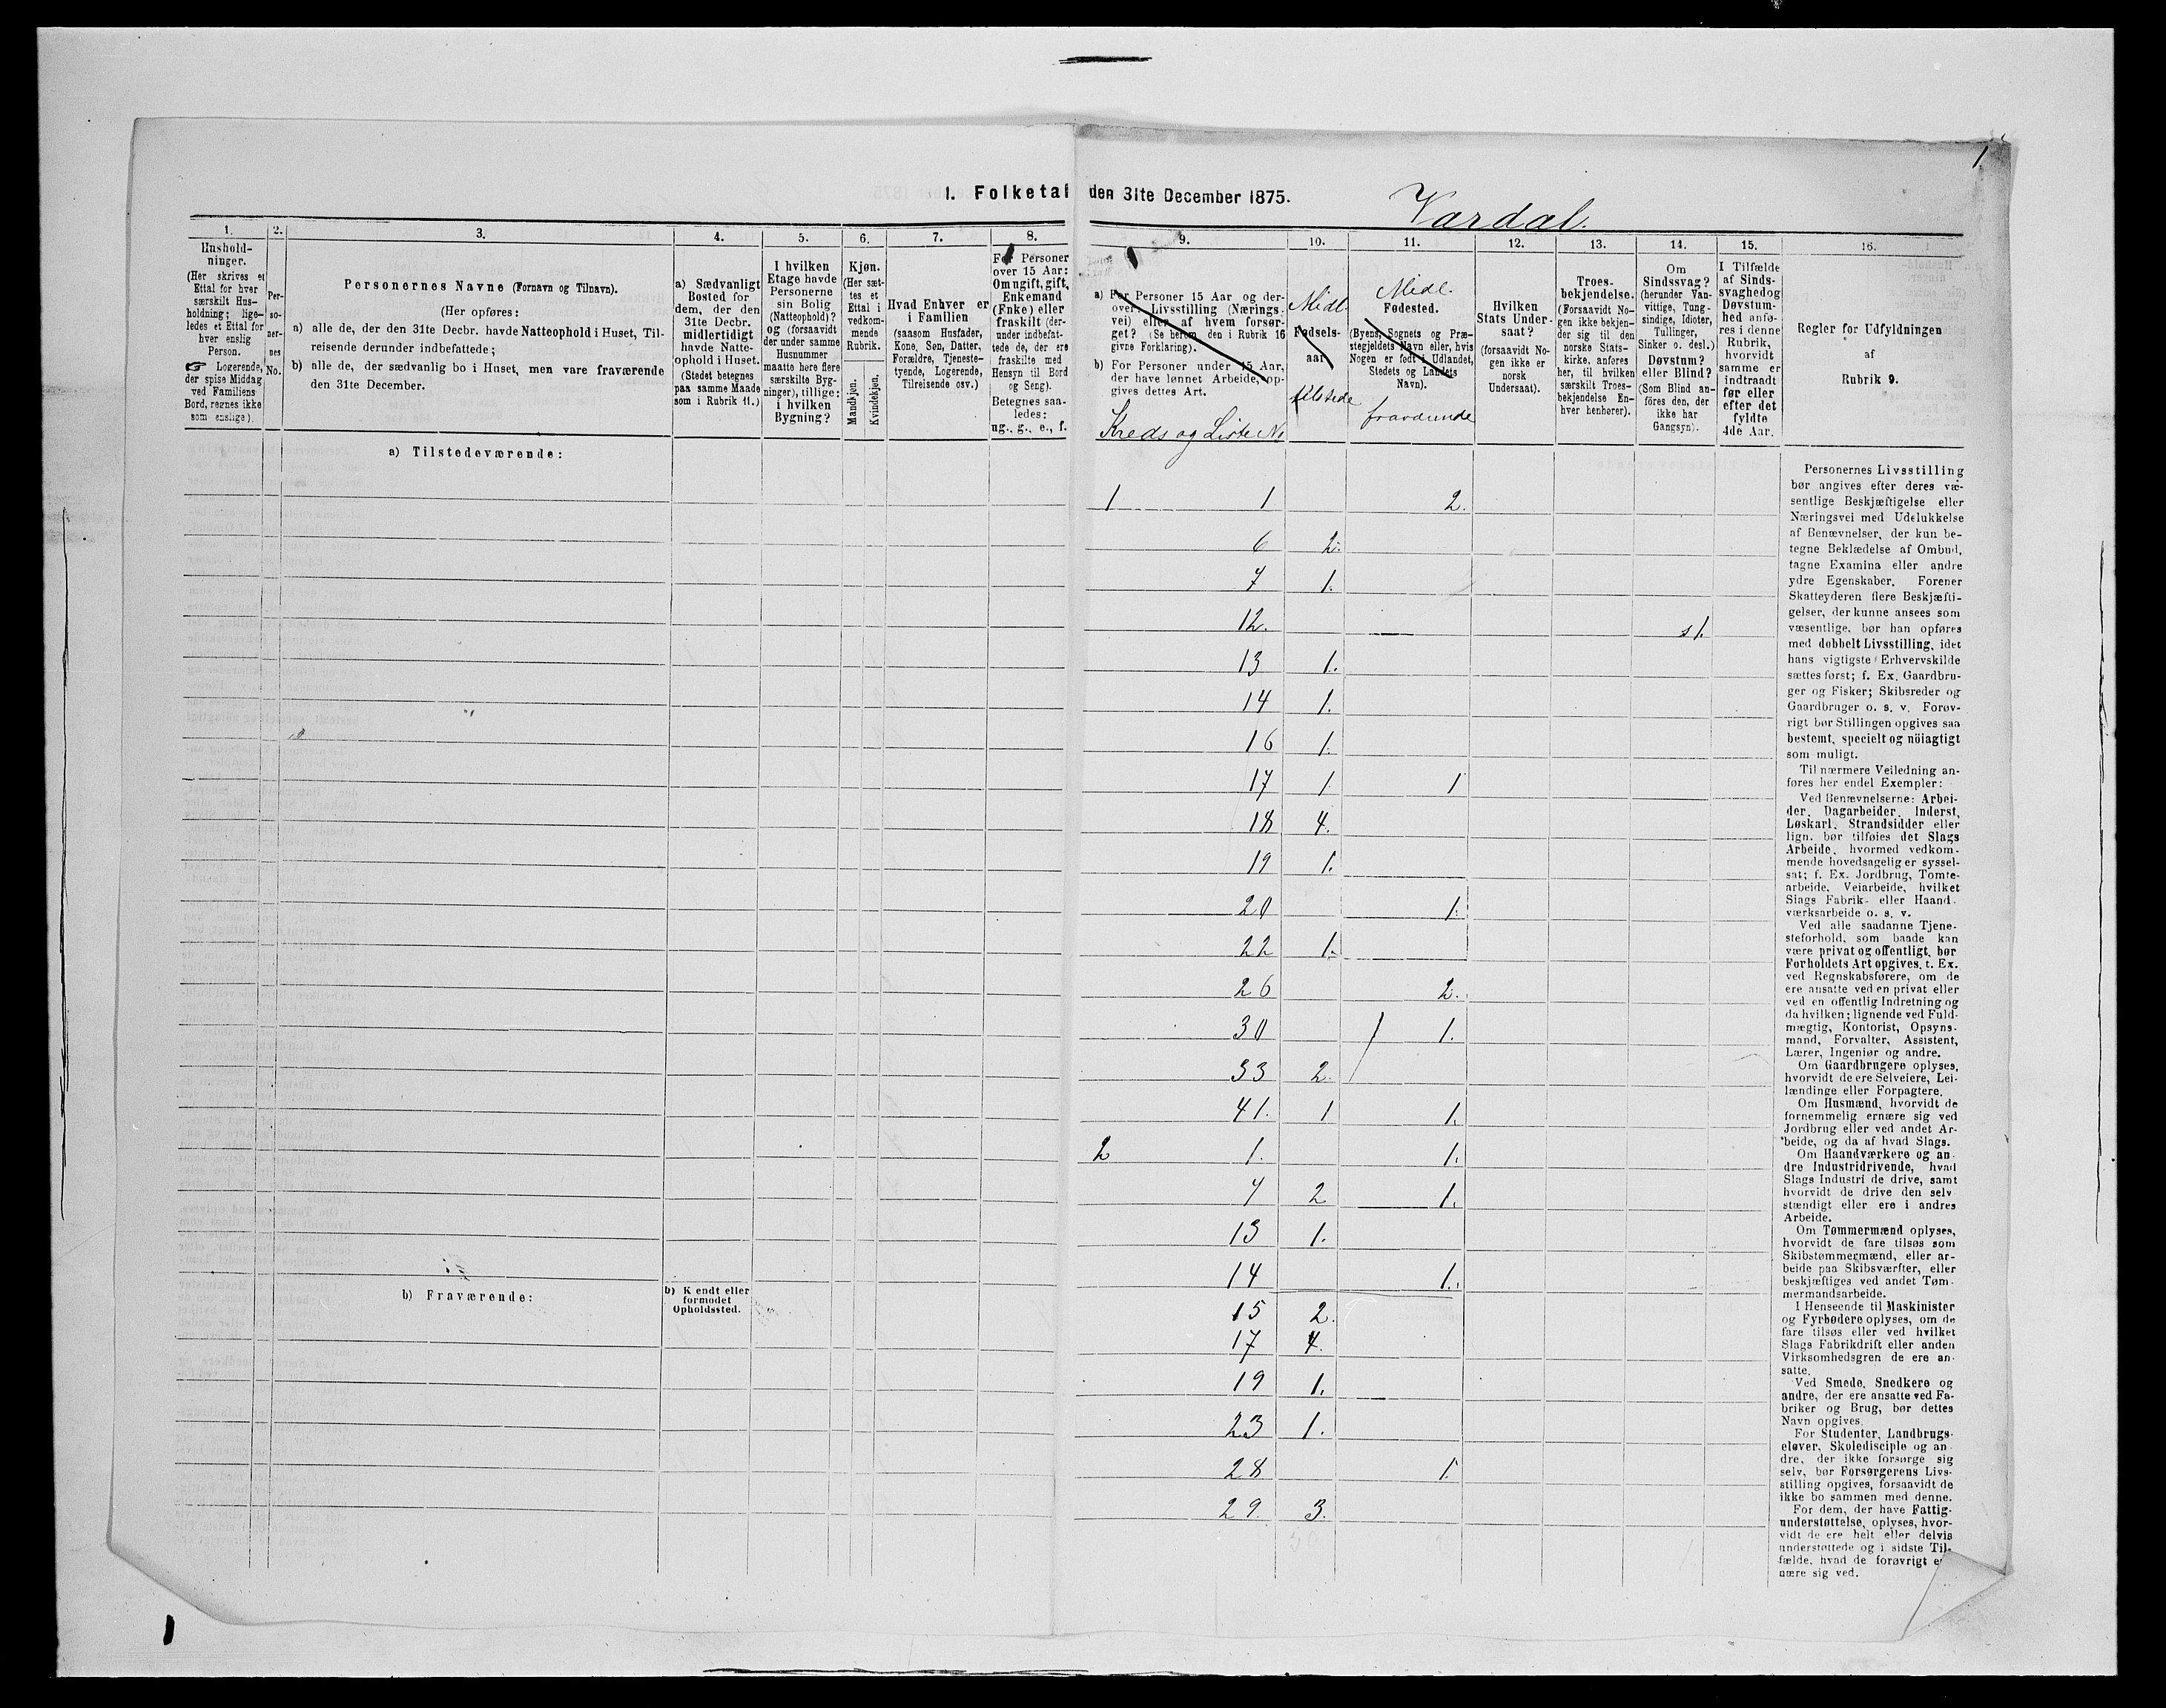 1.
1. Folketal den 31te December 1875.
Vardal.
1.
Hushold-
ninger.
(Her skrives et
Ettal for hver
særskilt Hus-
holdning; lige-
ledes et Ettal for
hver enslig
Person.
☞ Logerende,
der spise Middag
ved Familiens
Bord, regnes ikke
som enslige).
2.
Per-
so-
ner-
nes
No.
3.
Personernes Navne (Fornavn og Tilnavn).
(Her opføres:
a) alle de, der den 31te Decbr. havde Natteophold i Huset, Til-
reisende derunder indbefattede;
b) alle de, der sædvanlig bo i Huset, men vare fraværende
den 31te December.
4.
a) Sædvanligt
Bosted for
dem, der den
31te Decbr.
midlertidigt
havde Natte-
ophold i Huset.
(Stedet betegnes
paa samme Maade
som i Rubrik 11.)
5.
I hvilken
Etage havde
Personerne
sin Bolig
(Natteophold)?
og (forsaavidt
der under samme
Husnummer
maatte høre flere
særskilte Byg-
ninger), tillige:
i hvilken
Bygning?
6.
Kjøn.
(Her sæt-
tes et
Ettal i
vedkom-
mende
Rubrik.
Mandkjøn.
Kvindekjøn.
7.
Hvad Enhver er
i Familien
(saasom Husfader,
Kone, Søn, Datter,
Forældre, Tjeneste-
tyende, Logerende,
Tilreisende osv.)
8.
For Personer
over 15 Aar:
Om ugift, gift,
Enkemand
(Enke) eller
fraskilt (der-
under indbefat-
tede de, der ere
fraskilte med
Hensyn til Bord
og Seng).
Betegnes saa-
ledes:
ug., g., e., f.
9.
a) For Personer 15 Aar og der-
over, Livsstilling (Nærings-
vei) eller af hvem forsør-
get? (Se herom den i Rubrik 16
givne Forklaring).
b) For Personer under 15 Aar,
der have lønnet Arbeide, op-
gives dettes Art.
Kreds og Liste No
10.
Midl.
Fødsels-
aar
tilstede
11.
Midl.
Fødested.
(Byens, Sognets og Præ-
stegjeldets Navn eller, hvis
Nogen er født i Udlandet,
Stedets og Landets
Navn).
fraværende
12.
Hvilken
Stats Under-
saat?
(forsaavidt No-
gen ikke er
norsk
Undersaat).
13.
Troes-
bekjendelse.
(Forsaavidt No-
gen ikke bekjen-
der sig til den
norske Stats-
kirke, anføres
her, til hvilken
særskilt Troes-
bekjendelse En-
hver henhører).
14.
Om
Sindssvag?
(herunder Van-
vittige, Tung-
sindige, Idioter,
Tullinger,
Sinker o. desl.)
Døvstum?
eller Blind?
(Som Blind an-
föres den, der
ikke har
Gangsyn).
15.
I Tilfælde
af Sinds-
svaghed og
Døvstum-
hed anfø-
res i denne
Rubrik,
hvorvidt
samme er
indtraadt
før eller
efter det
fyldte
4de Aar.
16.
Regler for Udfyldningen
af
Rubrik 9.
a) Tilstedeværende:
1 1 2.
6 2.
7 1.
12. s 1.
13 1.
14 1.
16 1.
17 1. 1
18 4.
19 1.
20 1.
22 1.
26 2.
30 1.
33 2.
41. 1 1.
2 1. 1.
7 2 1.
13 1.
14 1.
15 2.
17 4.
19 1.
23 1.
28 1.
29. 3.
b) Fraværende:
b) Kendt eller
formodet
Opholdssted.
Personernes Livsstilling
bør angives efter deres væ-
sentlige Beskjæftigelse eller
Næringsvei med Udelukkelse
af Benævnelser, der kun be-
tegne Beklædelse af Ombud,
tagne Examina eller andre
ydre Egenskaber. Forener
Skatteyderen flere Beskjæfti-
gelser, der kunne ansees som
væsentlige, bør han opføres
med dobbelt Livsstilling, idet
hans vigtigste Erhvervskilde
sættes først; f. Ex. Gaardbru-
ger og Fisker; Skibsreder og
Gaardbruger o. s. v. Forøv-
rigt bør Stillingen opgives saa
bestemt, specielt og nöiagtigt
som muligt.
Til nærmere Veiledning an-
føres her endel Exempler:
Ved Benævnelserne: Arbei-
der, Dagarbeider, Inderst,
Løskarl, Strandsidder eller
lign. bør tilføies det Slags
Arbeide, hvormed vedkom-
mende hovedsagelig er syssel-
sat; f. Ex. Jordbrug, Tomte-
arbeide, Veiarbeide, hvilket
Slags Fabrik- eller Haand-
værksarbeide o. s. v.
Ved alle saadanne Tjene-
steforhold, som baade kan
være privat og offentligt, bør
Forholdets Art opgives, t. Ex.
ved Regnskabsførere, om de
ere ansatte ved en privat eller
ved en offentlig Indretning og
da hvilken; lignende ved Fuld-
mægtig, Kontorist, Opsyns-
mand, Forvalter, Assistent,
Lærer, Ingeniør og andre.
Om Gaardbrugere oplyses,
hvorvidt de ere Selveiere, Lei-
lændinge eller Forpagtere.
Om Husmænd, hvorvidt de
fornemmelig ernære sig ved
Jordbrug eller ved andet Ar-
beide, og da af hvad Slags.
Om Haandværkere og an-
dre Industridrivende, hvad
Slags Industri de drive, samt
hvorvidt de drive den selv-
stændigt eller ere i andres
Arbeide.
Om Tømmermænd oplyses,
hvorvidt de fare tilsøs som
Skibstømmermænd, eller ar-
beide paa Skibsværfter, eller
beskjæftiges ved andet Tøm-
mermandsarbeide.
I Henseende til Maskinister
og Fyrbødere oplyses, om de
fare tilsøs eller ved hvilket
Slags Fabrikdrift eller anden
Virksomhedsgren de ere an-
satte.
Ved Smede, Snedkere og
andre, der ere ansatte ved Fa-
briker og Brug, bør dettes
Navn opgives.
For Studenter, Landbrugs-
elever, Skoledisciple og an-
dre, der ikke forsørge sig
selv, bør Forsørgerens Livs-
stilling opgives, forsaavidt de
ikke bo sammen med denne.
For dem, der have Fattig-
understøttelse, oplyses, hvor-
vidt de ere helt eller delvis
understøttede og i sidste Til-
fælde, hvad de forøvrigt er-
nære sig ved.